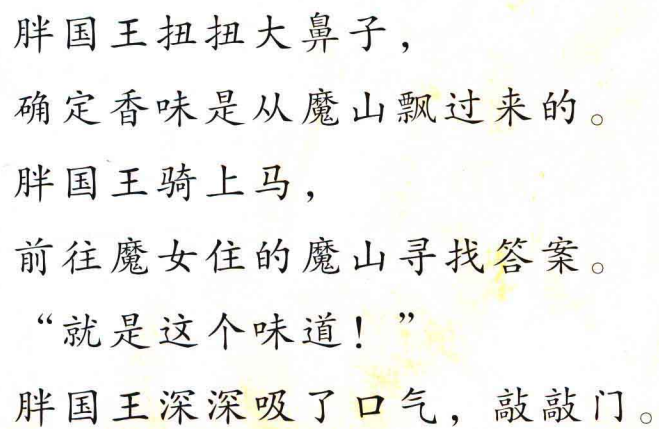 胖国王扭扭大鼻子，
确定香味是从魔山飘过来的。
胖国王骑上马，
前往魔女住的魔山寻找答案。
“就是这个味道！”
胖国王深深吸了口气，敲敲门。